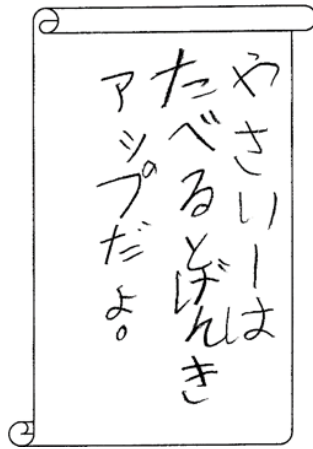 やさいーは
たべるとげんき
アップだよ。